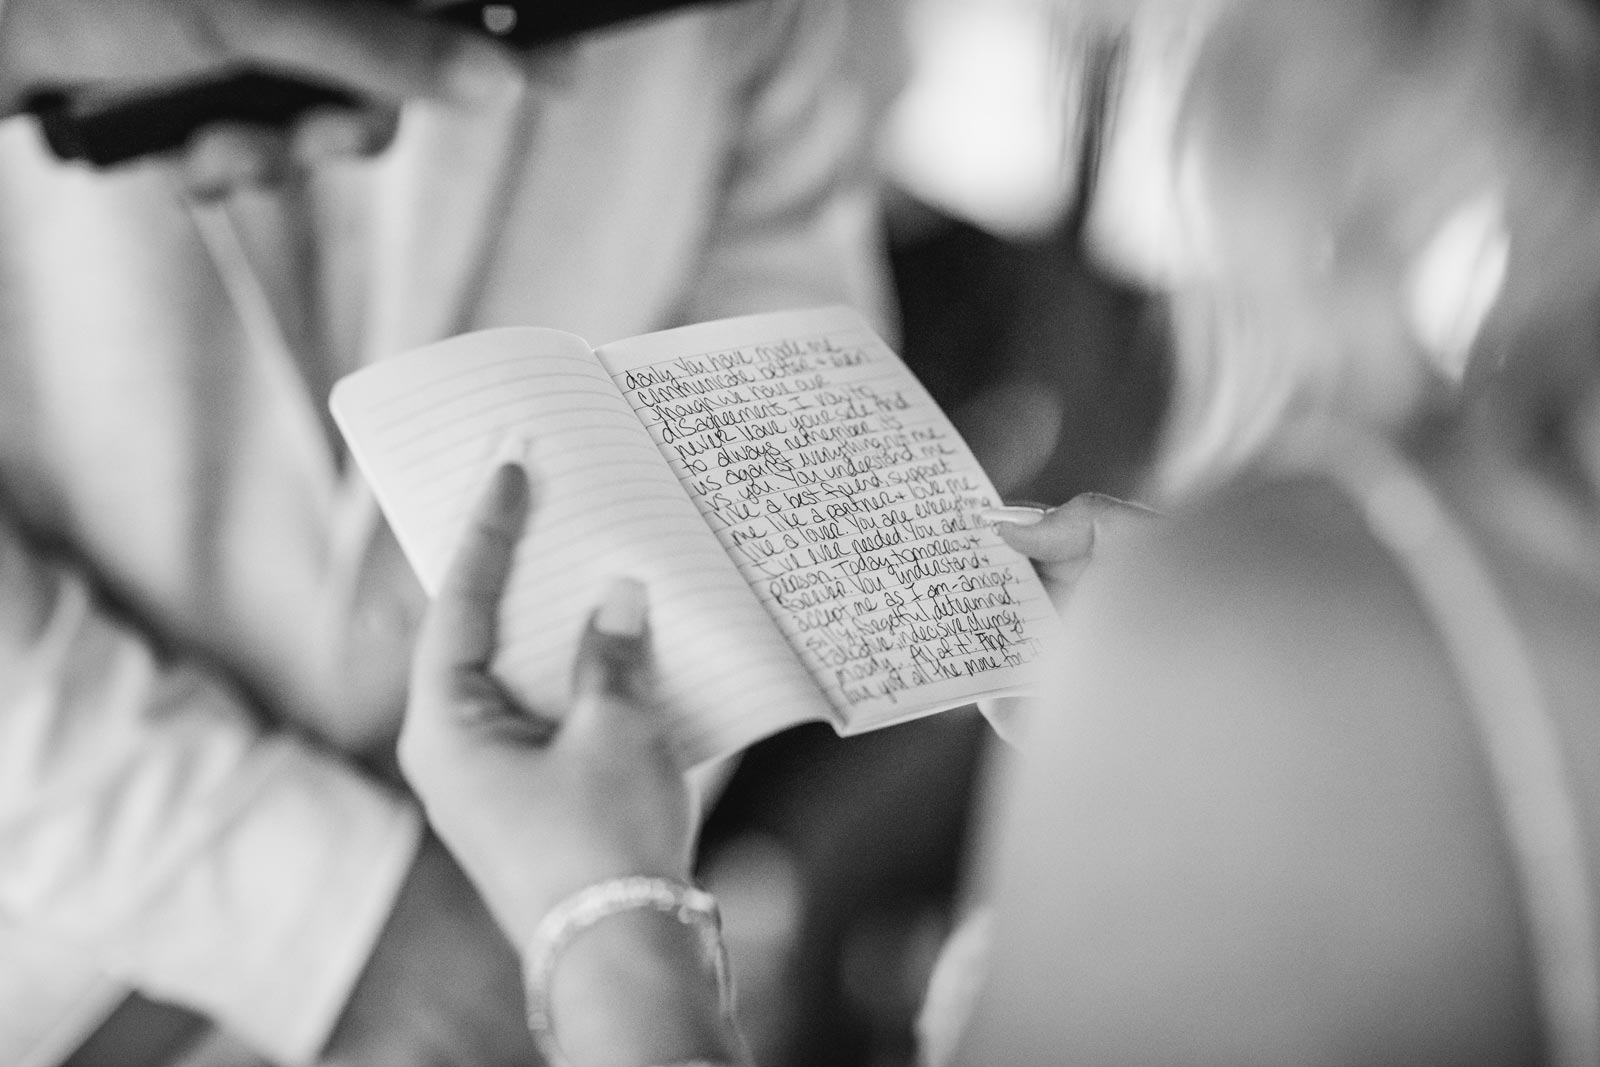 daily. You have made me
communicate better + even
though we have our
disagreements, I vow to
never leave your side And
to always remember its
us against everything not me
vs you. You understand me
like a best friend, support
me like a partner + love me
like a lover. You are everything
I've ever needed. You are my
person. Today, tomorrow +
forever. You understand +
accept me as I am - anxious,
silly, forgetful, determined,
talkative, indecisive, clumsy,
moody... All of it. And
love you all the more for it